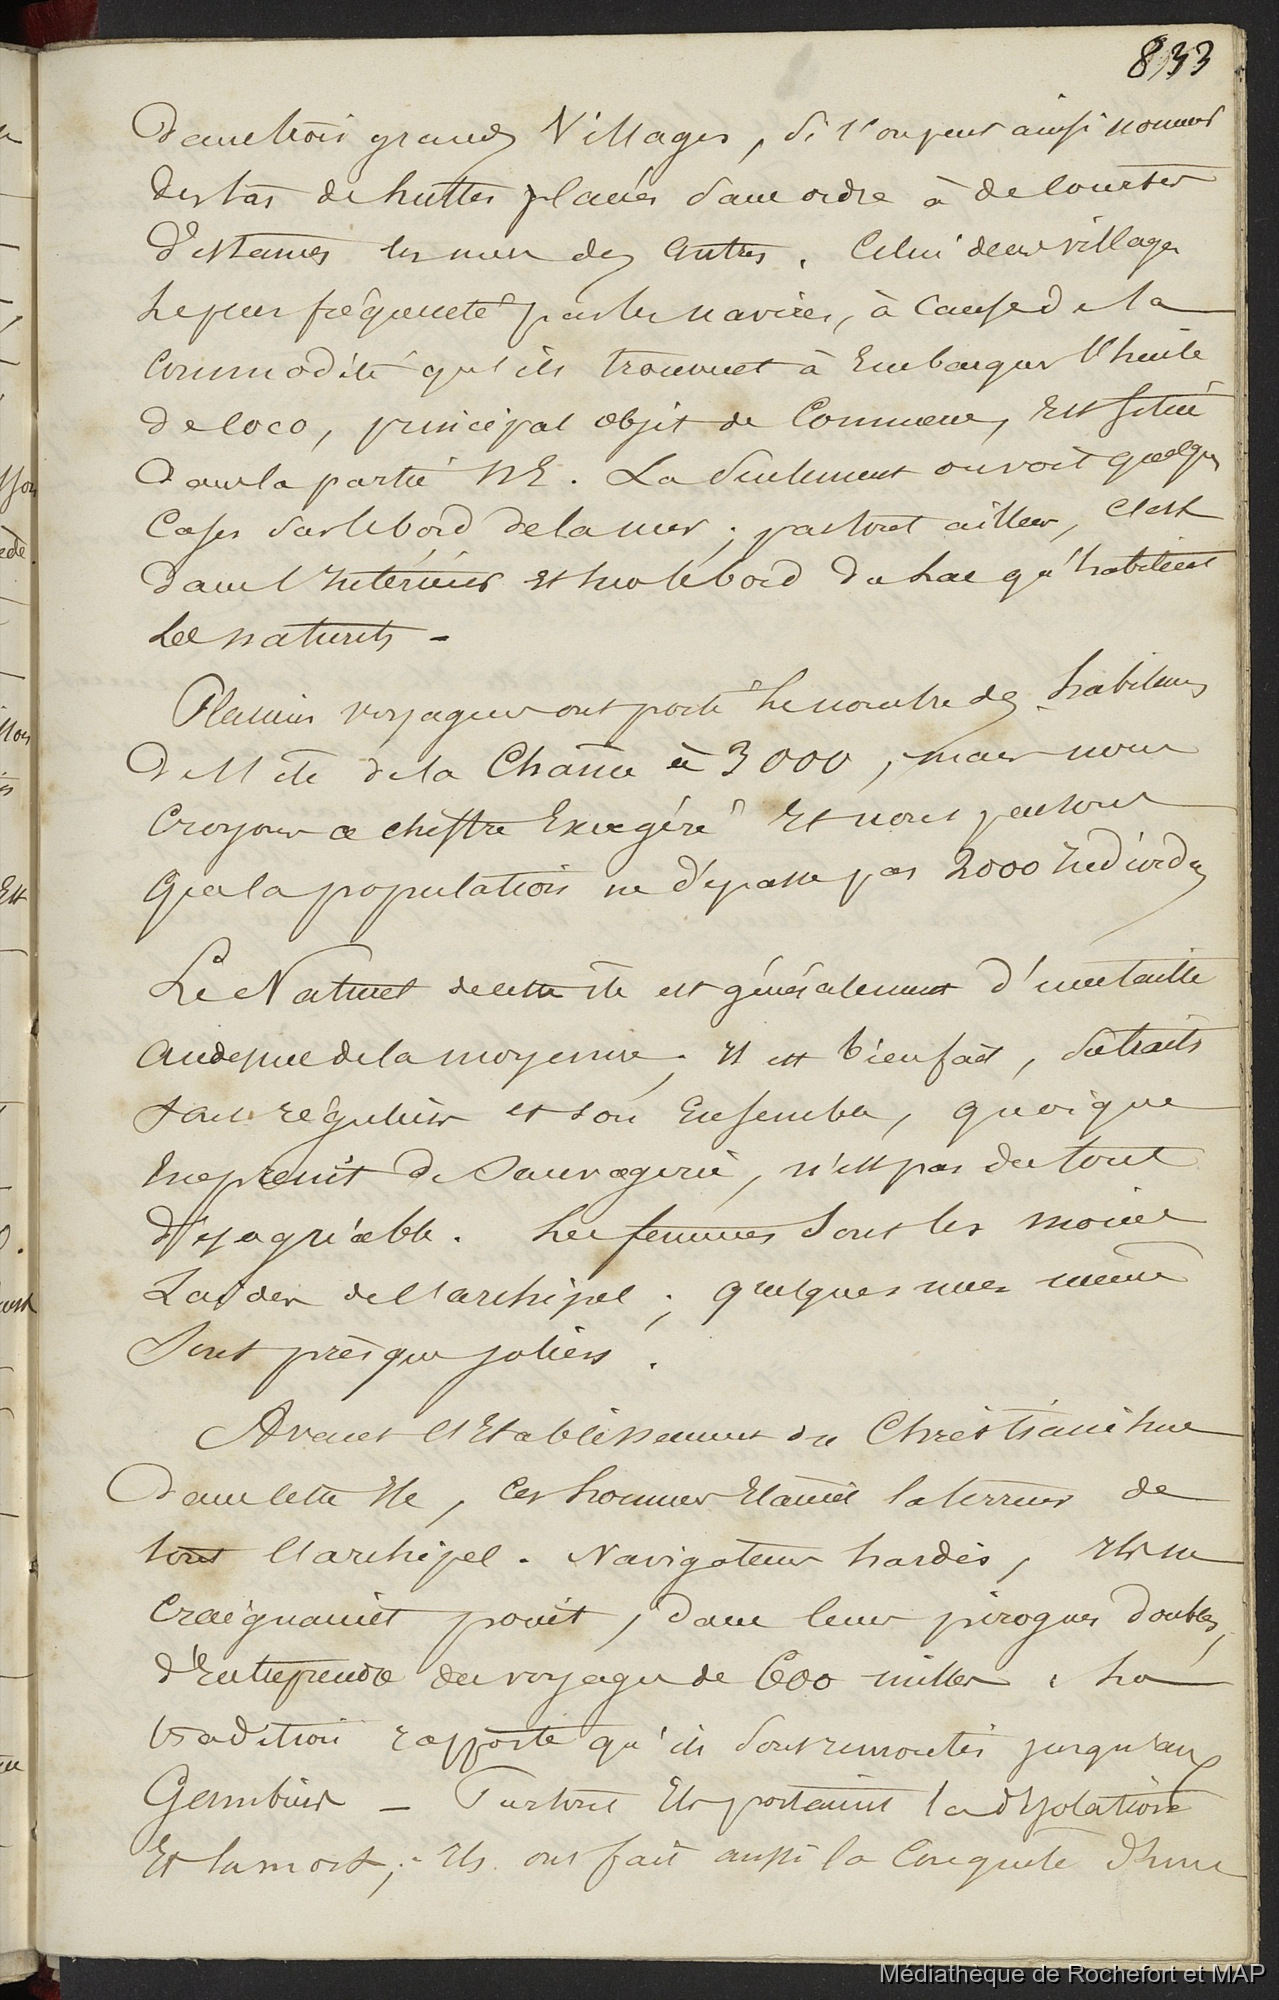 833
Dans trois grands Villages, si l'on peut ainsi nommer
des tas de huttes placées sans ordre à de courtes
distances les unes des autres. Celui de ces villages
le plus fréquenté par les navires, à cause de la
commodité qu'ils trouvent à Embarquer l'huile
de coco, principal objet de Commerce, Est situé
dans la partie NE. La seulement on voit quelques
Cases sur le bord de la mer ; partout ailleurs, c'est
dans l'Intérieur et sur le bord du Lac qu'habitent
Les naturels -
Plusieurs voyageurs ont porté le nombre des habitans
de l'île de la Chaîne à 3000, mais nous
croyons ce chiffre Exagéré Et nous pensons
que la population ne dépasse pas 2000 Individus
Le Naturel de cette île est généralement d'une taille
audessus de la moyenne ; Il est bien fait, ses traits
sont réguliers et son Ensemble, quoique
Empreint de Sauvagerie, n'est pas du tout
désagréable. Les femmes sont les moins
Laides de l'archipel ; quelques unes même
sont presque jolies.
Avant l'Etablissement du Christianisme
dans cette Ile, ces hommes Etaient la terreur de
tout l'archipel. Navigateurs hardis, Ils ne
craignaient point, dans leurs pirogues doubles,
d'Entreprendre des voyages de 600 milles. La
tradition rapporte qu'ils sont remontés jusqu'aux
Gambier - Partout Ils portaient la désolation
Et la mort ; Ils ont fait aussi la Conquête d'une
Médiathèque de Rochefort et MAP